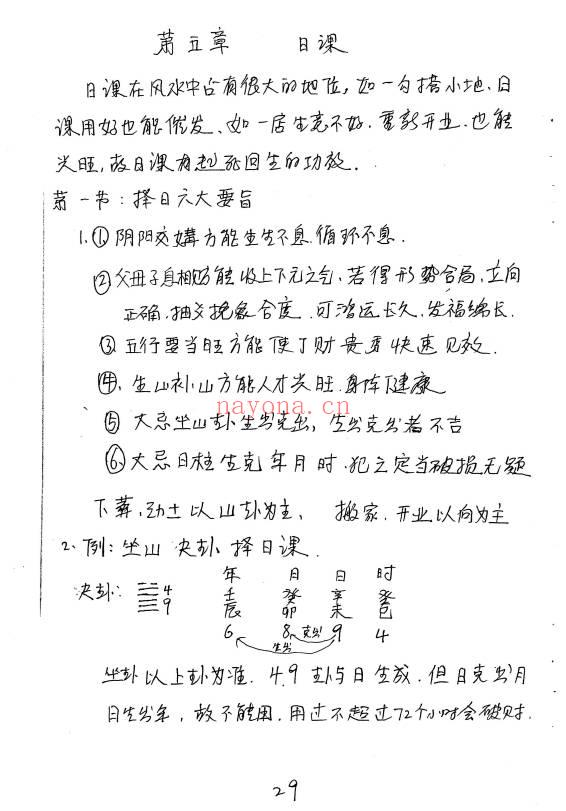 第五章 日课
日课在风水中占有很大的地位，如一勾搭小地，日
课用好也能催发、如一居宅不好、重新开业、也能
兴旺，故日课有起死回生的功效．
第一节：择日六大要旨
1.① 阴阳交媾方能生生不息循环不息．
② 父母子息相配能收上下元之气，若得形势合局，立向
正确，抽爻换象合度，可鸿运长久，发福绵长．
③ 五行要当旺方能使丁财贵秀快速见效．
④，生山补山方能人才兴旺 身体健康
nayona.cn
⑤ 大忌坐山卦生出克出，生出克出者不吉
⑥大忌日柱生克年月时．犯之定当破损无疑
下葬，动土以山卦为主， 搬家、开业以向为主
2、例：坐山 夬卦 择日课．
年 月 日 时
夬卦： 4 壬 癸 辛 癸
9 辰 卯 未 巳
6 8 克出 9 4
生出
坐卦以上卦为准．4.9 卦与日生成．但日克出月
日生出年，故不能用．用过不超过72个小时会破财．
29